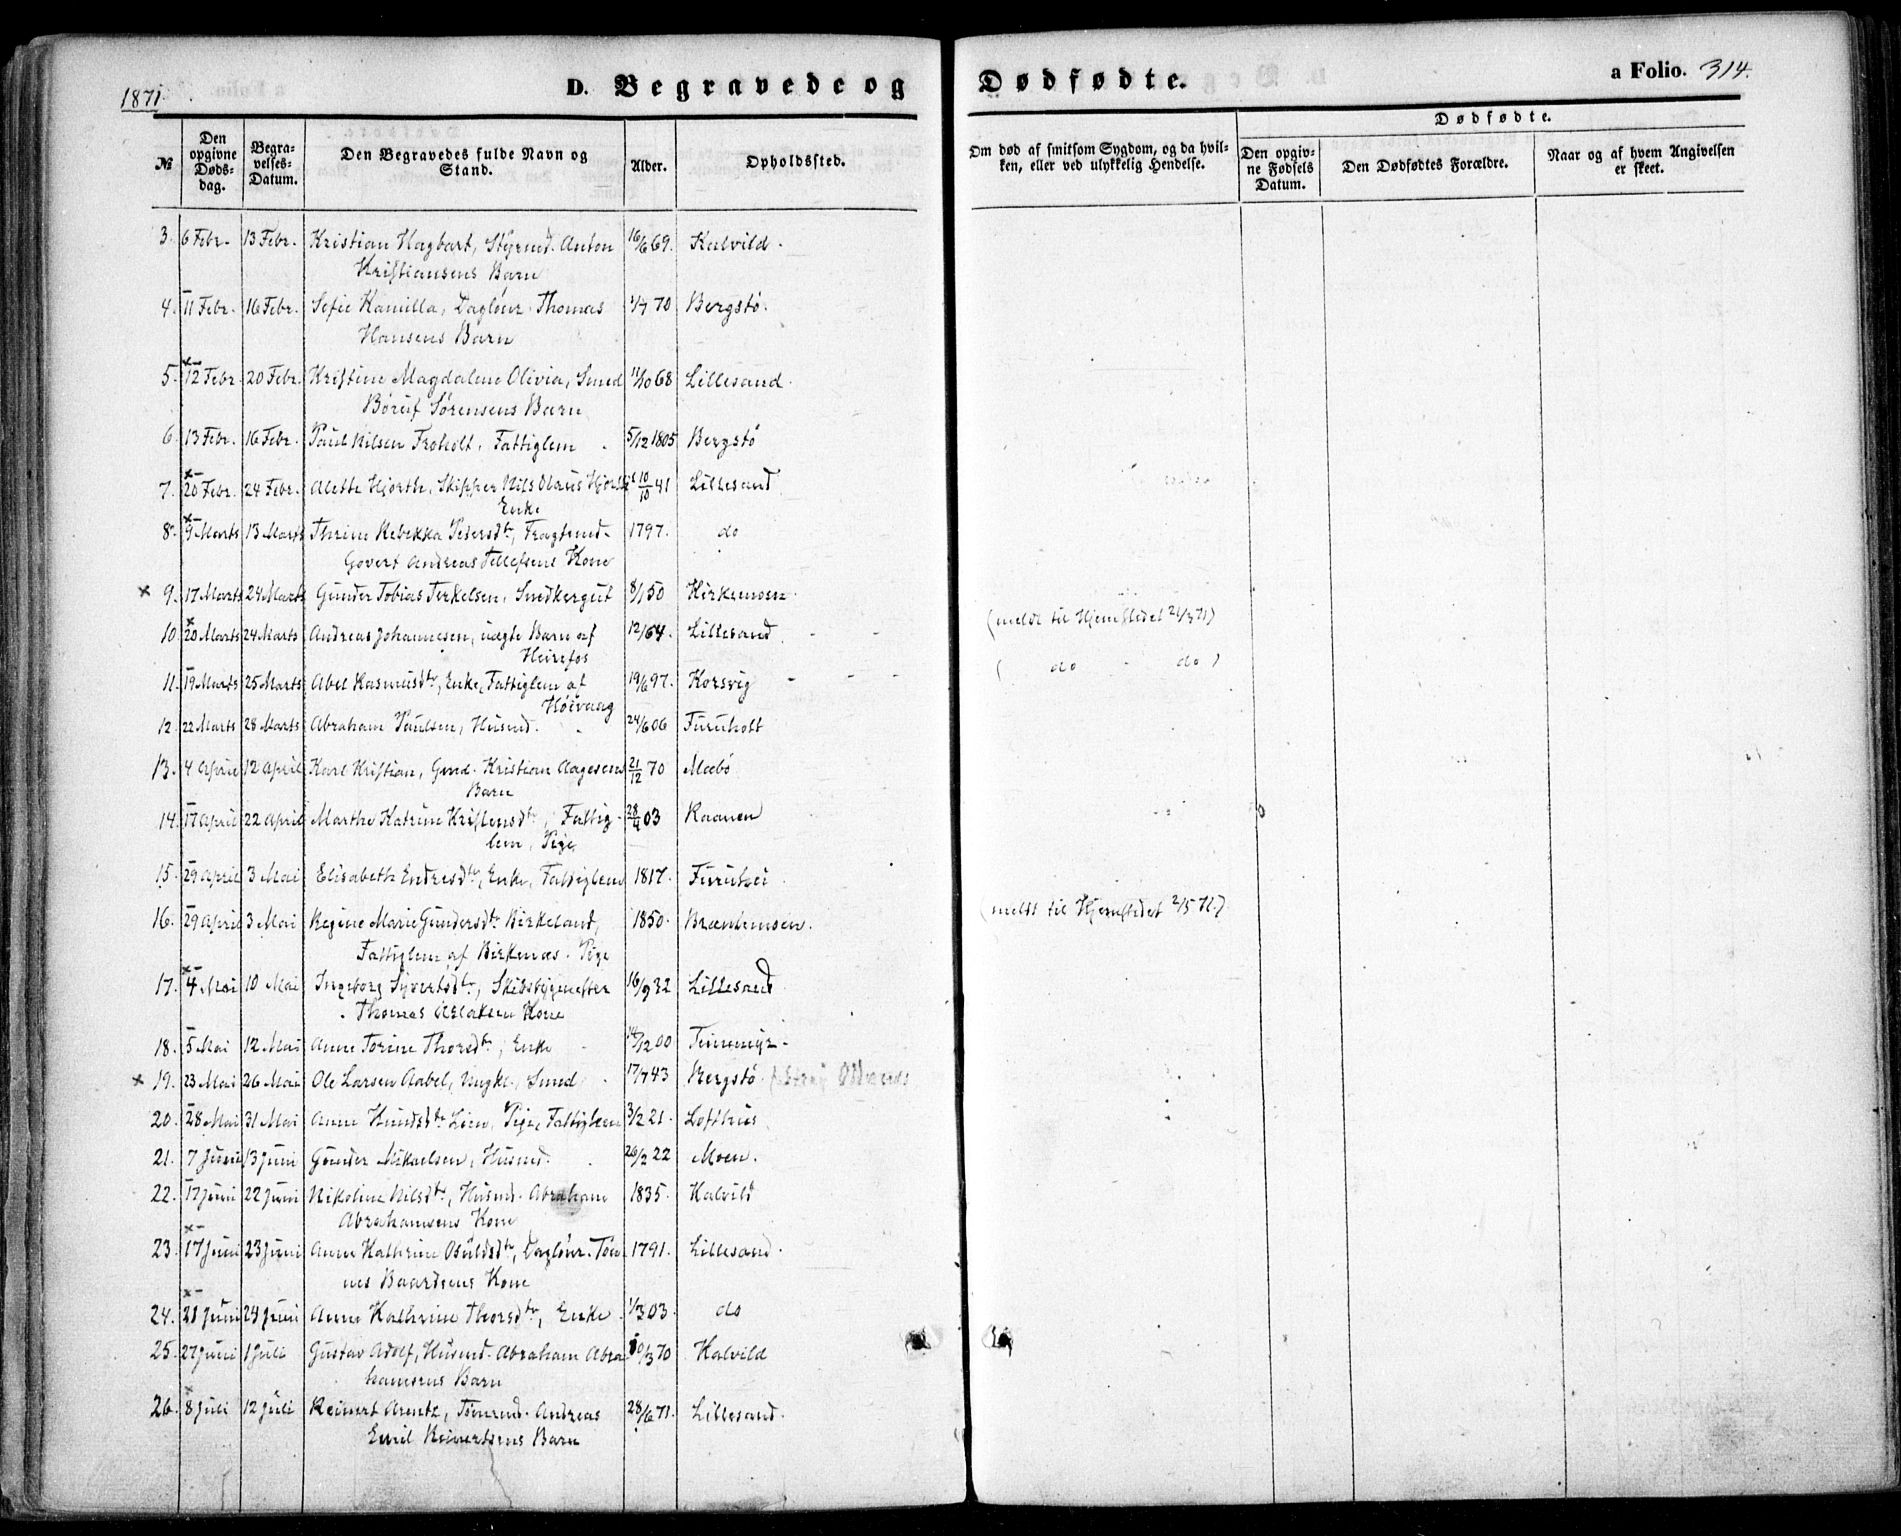 1871.
D. Begravede og Dødfødte. a Folio. 314.
№
Den opgivne Døds-dag.
Begra-velses-Datum.
Den Begravedes fulde Navn og Stand.
Alder.
Opholdssted.
Om død af smitsom Sygdom, og da hvil-
ken, eller ved ulykkelig Hendelse.
Dødfødte.
Den opgiv-ne Fødsels Datum.
Den Dødfødtes Forældre.
Naar og af hvem Angivelsen er skeet.
3. 6 Febr. 13 Febr. Kristian Hagbart, Styrmd. Anton 16/6 69. Kalvild.
Kristiansens Barn
4. 11 Febr. 16 Febr. Sofie Kamilla, Dagløner Thomas 1/7 70 Bergstø.
Hansens Barn
5. 12 Febr. 20 Febr. Kristine Magdalene Olivia, Smed 11/10 68 Lillesand.
Sørensens Barn
6. 13 Febr. 16 Febr. Paul Nilsen Froholt, Fattiglem 5/12 1805 Bergstø
7. 20 Febr. 24 Febr. Alette Hjorth, Skipper Nils Olaus Hjorths 10/10 41 Lillesand
Enke
8. 9 Marts 13 Marts Thrine Rebekka Pedersdtr, Fragtemd. 1797. do
Govert Andreas Tellefsens Kone
× 9. 17 Marts 24 Marts Gunder Tobias Terkelsen, Snedkergut 8/1 50 Kirkemoen
(meldt til Hjemstedet 21/3 71)
10. 20 Marts 24 Marts Andreas Johannesen, uægte Barn af 12/64. Lillesand
Heirefos
( do - do )
11. 19 Marts 25 Marts Abel Rasmusdtr, Enke, Fattiglem af 19/6 97. Korsvig
Høivaag
12. 22 Marts 28 Marts Abraham Paulsen, Husmd. 24/6 06 Furuholt
13. 4 April 12 April Karl Kristian, Gmd. Kristian Aagesens 21/12 70 Mæbø
Barn
14. 17 April 22 April Marthe Katrine Kristensdtr, Fattig- 28/4 03 Raanen
lem, Pige
15. 29 April 3 Mai Elisabeth Endresdtr, Enke, Fattiglem 1817. Furuhei
16. 29 April 3 Mai Regine Marie Gundersdtr Birkeland, 1850. Brænhemsen.
(meldt til Hjemstedet 2/5 71.)
Fattiglem af Birkenæs. Pige
17. 4 Mai 10 Mai Ingeborg Syvertsdtr, Skibsbygmester 16/9 32 Lillesand
Thomas Aslaksen Kone
18. 5 Mai 12 Mai Anne Torine Thorsdtr, Enke 14/12 00
× 19. 23 Mai 26 Mai Ole Larsen Aabel, Ungk., Smed 17/7 43 Bergstø
20. 28 Mai 31 Mai Anne Knudsdtr Lien, Pige, Fattiglem 3/2 21. Lofthus
21. 7 Juni 13 Juni Gunder Mikaelsen, Husmd. 26/2 22 Moen.
22. 17 Juni 22 Juni Nikoline Nilsdtr, Husmd. Abraham 1835. Kalvild
Abrahamsens Kone
23. 17 Juni 23 Juni Anne Kathrine Osuldsdtr, Dagløner Tøn- 1791. Lillesand.
nes Baardsens Kone
24. 21 Juni 24 Juni Anne Kathrine Thorsdtr, Enke 1/3 03. do
25. 27 Juni 1 Juli Gustav Adolf, Husmd. Abraham Abra- 10/3 70 Kalvild
hamsens Barn
26. 8 Juli 12 Juli Reinert Arentz, Tømmd. Andreas 28/6 71. Lillesand.
Emil Reinertsens Barn